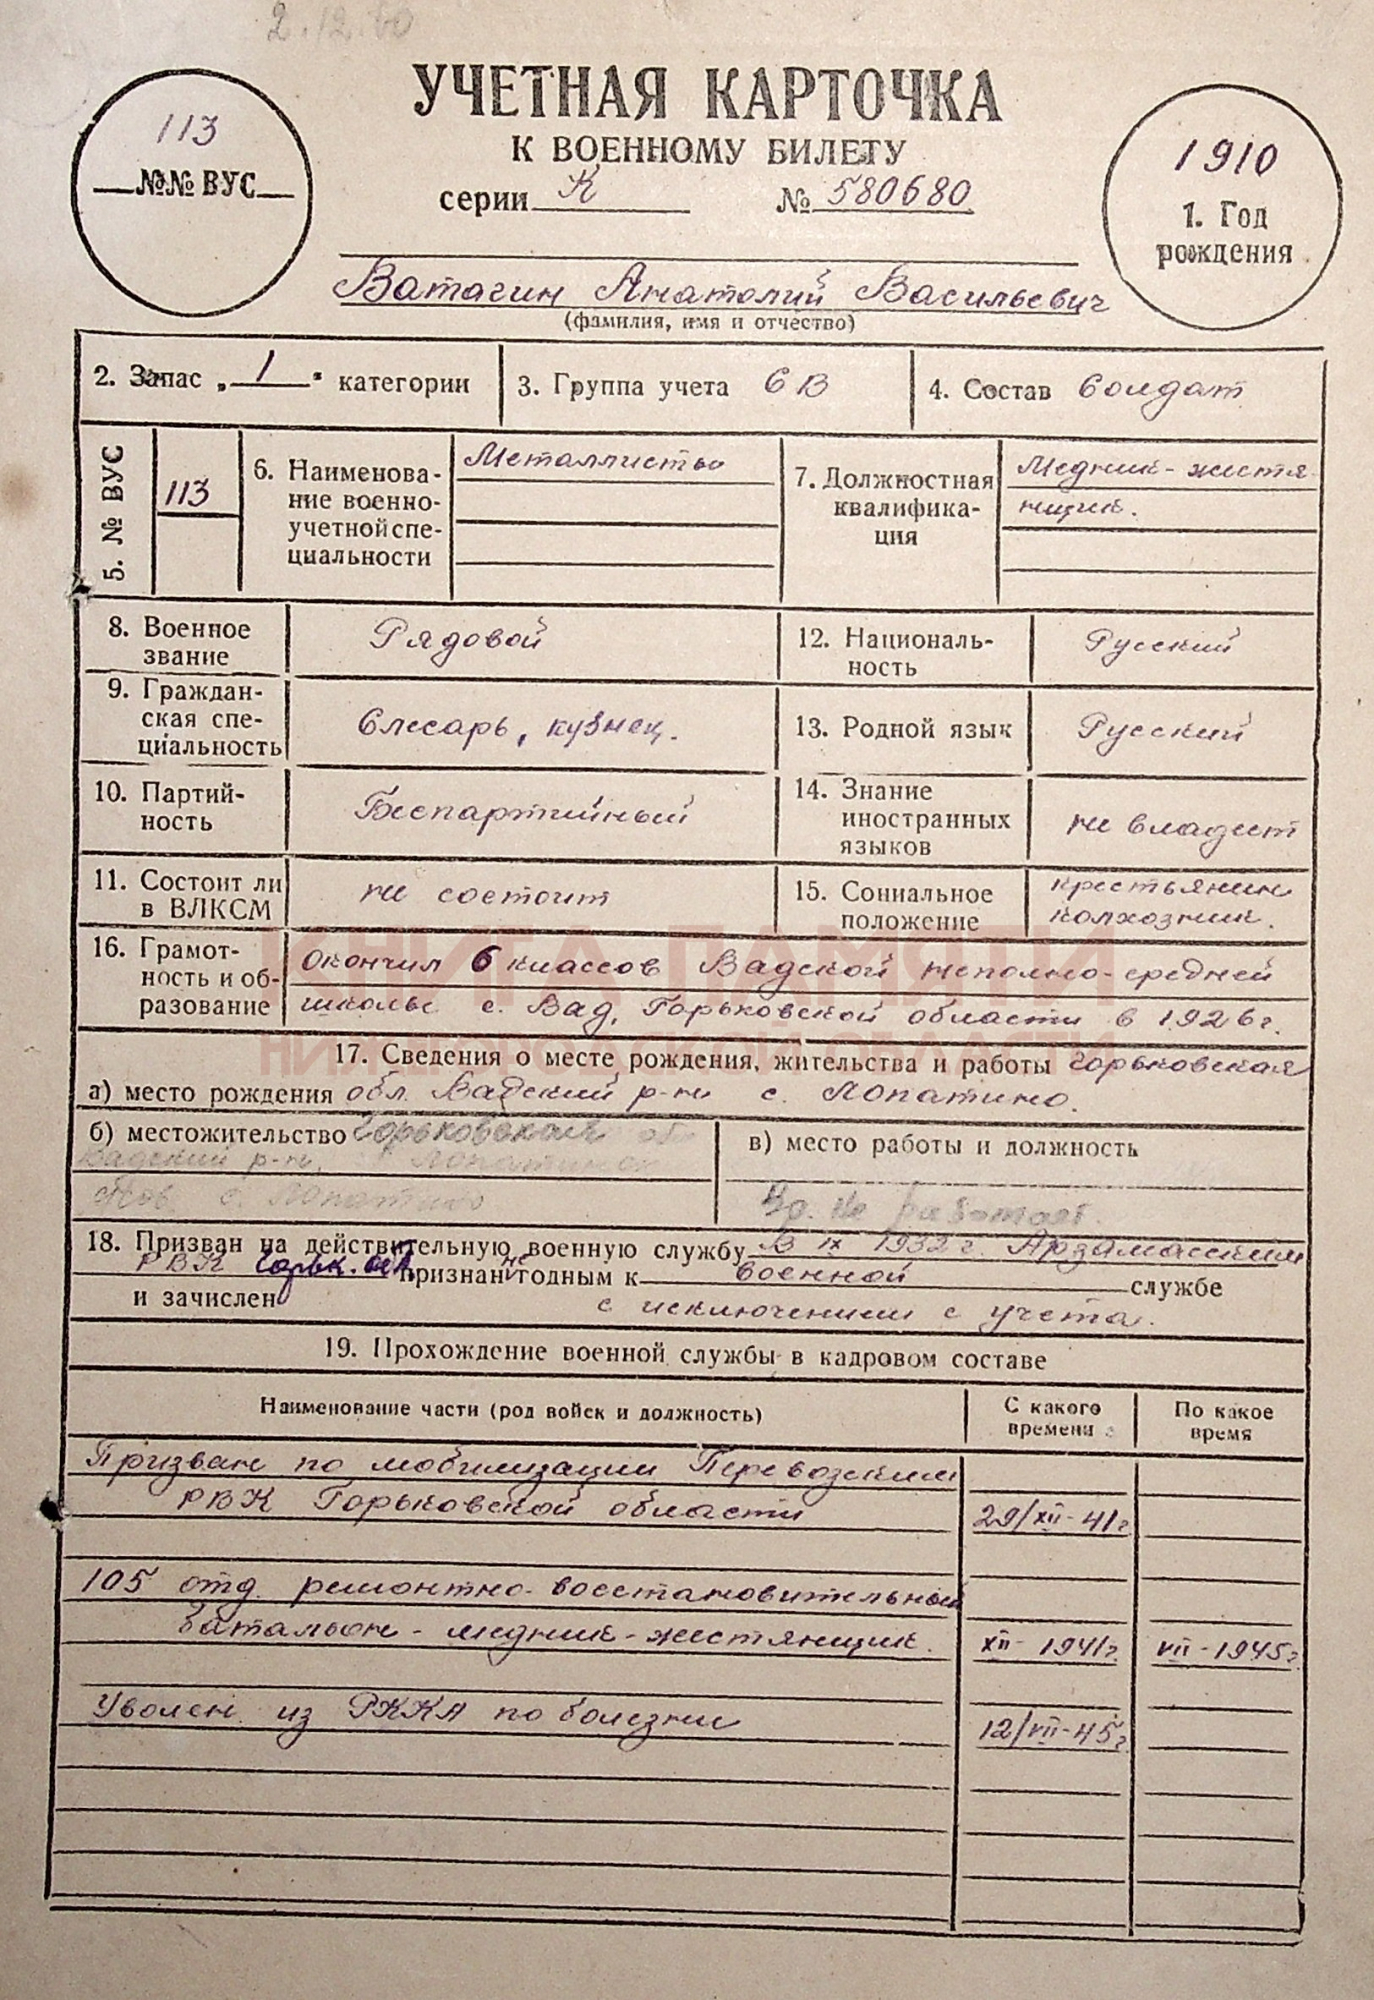 2.12.60
УЧЕТНАЯ КАРТОЧКА
К ВОЕННОМУ БИЛЕТУ
серии К № 580680
113
№№ ВУС
1910
1. Год
рождения
Ватагин Анатолий Васильевич
(фамилия, имя и отчество)
2. Запас „ 1 " категории
3. Группа учета СВ
4. Состав Солдат
5. № ВУС
113
6. Наименова-
ние военно-
учетной спе-
циальности
Металлисты
7. Должностная
квалифика-
ция
Медник-жестя
нщик.
8. Военное
звание
Рядовой
12. Националь-
ность
Русский
9. Граждан-
ская спе-
циальность
Слесарь, кузнец.
13. Родной язык
Русский
10. Партий-
ность
Беспартийный
14. Знание
иностранных
языков
не владеет
11. Состоит ли
в ВЛКСМ
не состоит
15. Социальное
положение
крестьянин
колхозник.
16. Грамот-
ность и об-
разование
окончил 6 классов Вадской неполно-средней
школы с. Вад, Горьковской области в 1926 г.
КНИГА ПАМЯТИ
НИЖЕГОРОДСКОЙ ОБЛАСТИ
17. Сведения о месте рождения, жительства и работы Горьковская
а) место рождения обл. Вадский р-н с. Лопатино.
б) местожительство Горьковская об
Вадский р-н, Лопатинск
с. Лопатино
в) место работы и должность
не работает.
18. Призван на действительную военную службу В IX 1932 г. Арзамасским
РВК Горьк. обл. признан не годным к военной службе
и зачислен с исключением с учета.
19. Прохождение военной службы в кадровом составе
Наименование части (род войск и должность)
С какого
времени
По какое
время
Призван по мобилизации Перевозским
РВК Горьковской области 29/XII-41г.
105 отд. ремонтно-восстановительный
батальон - медник-жестянщик. XII-1941г. VII-1945г.
Уволен из РККА по болезни 12/VII-45г.